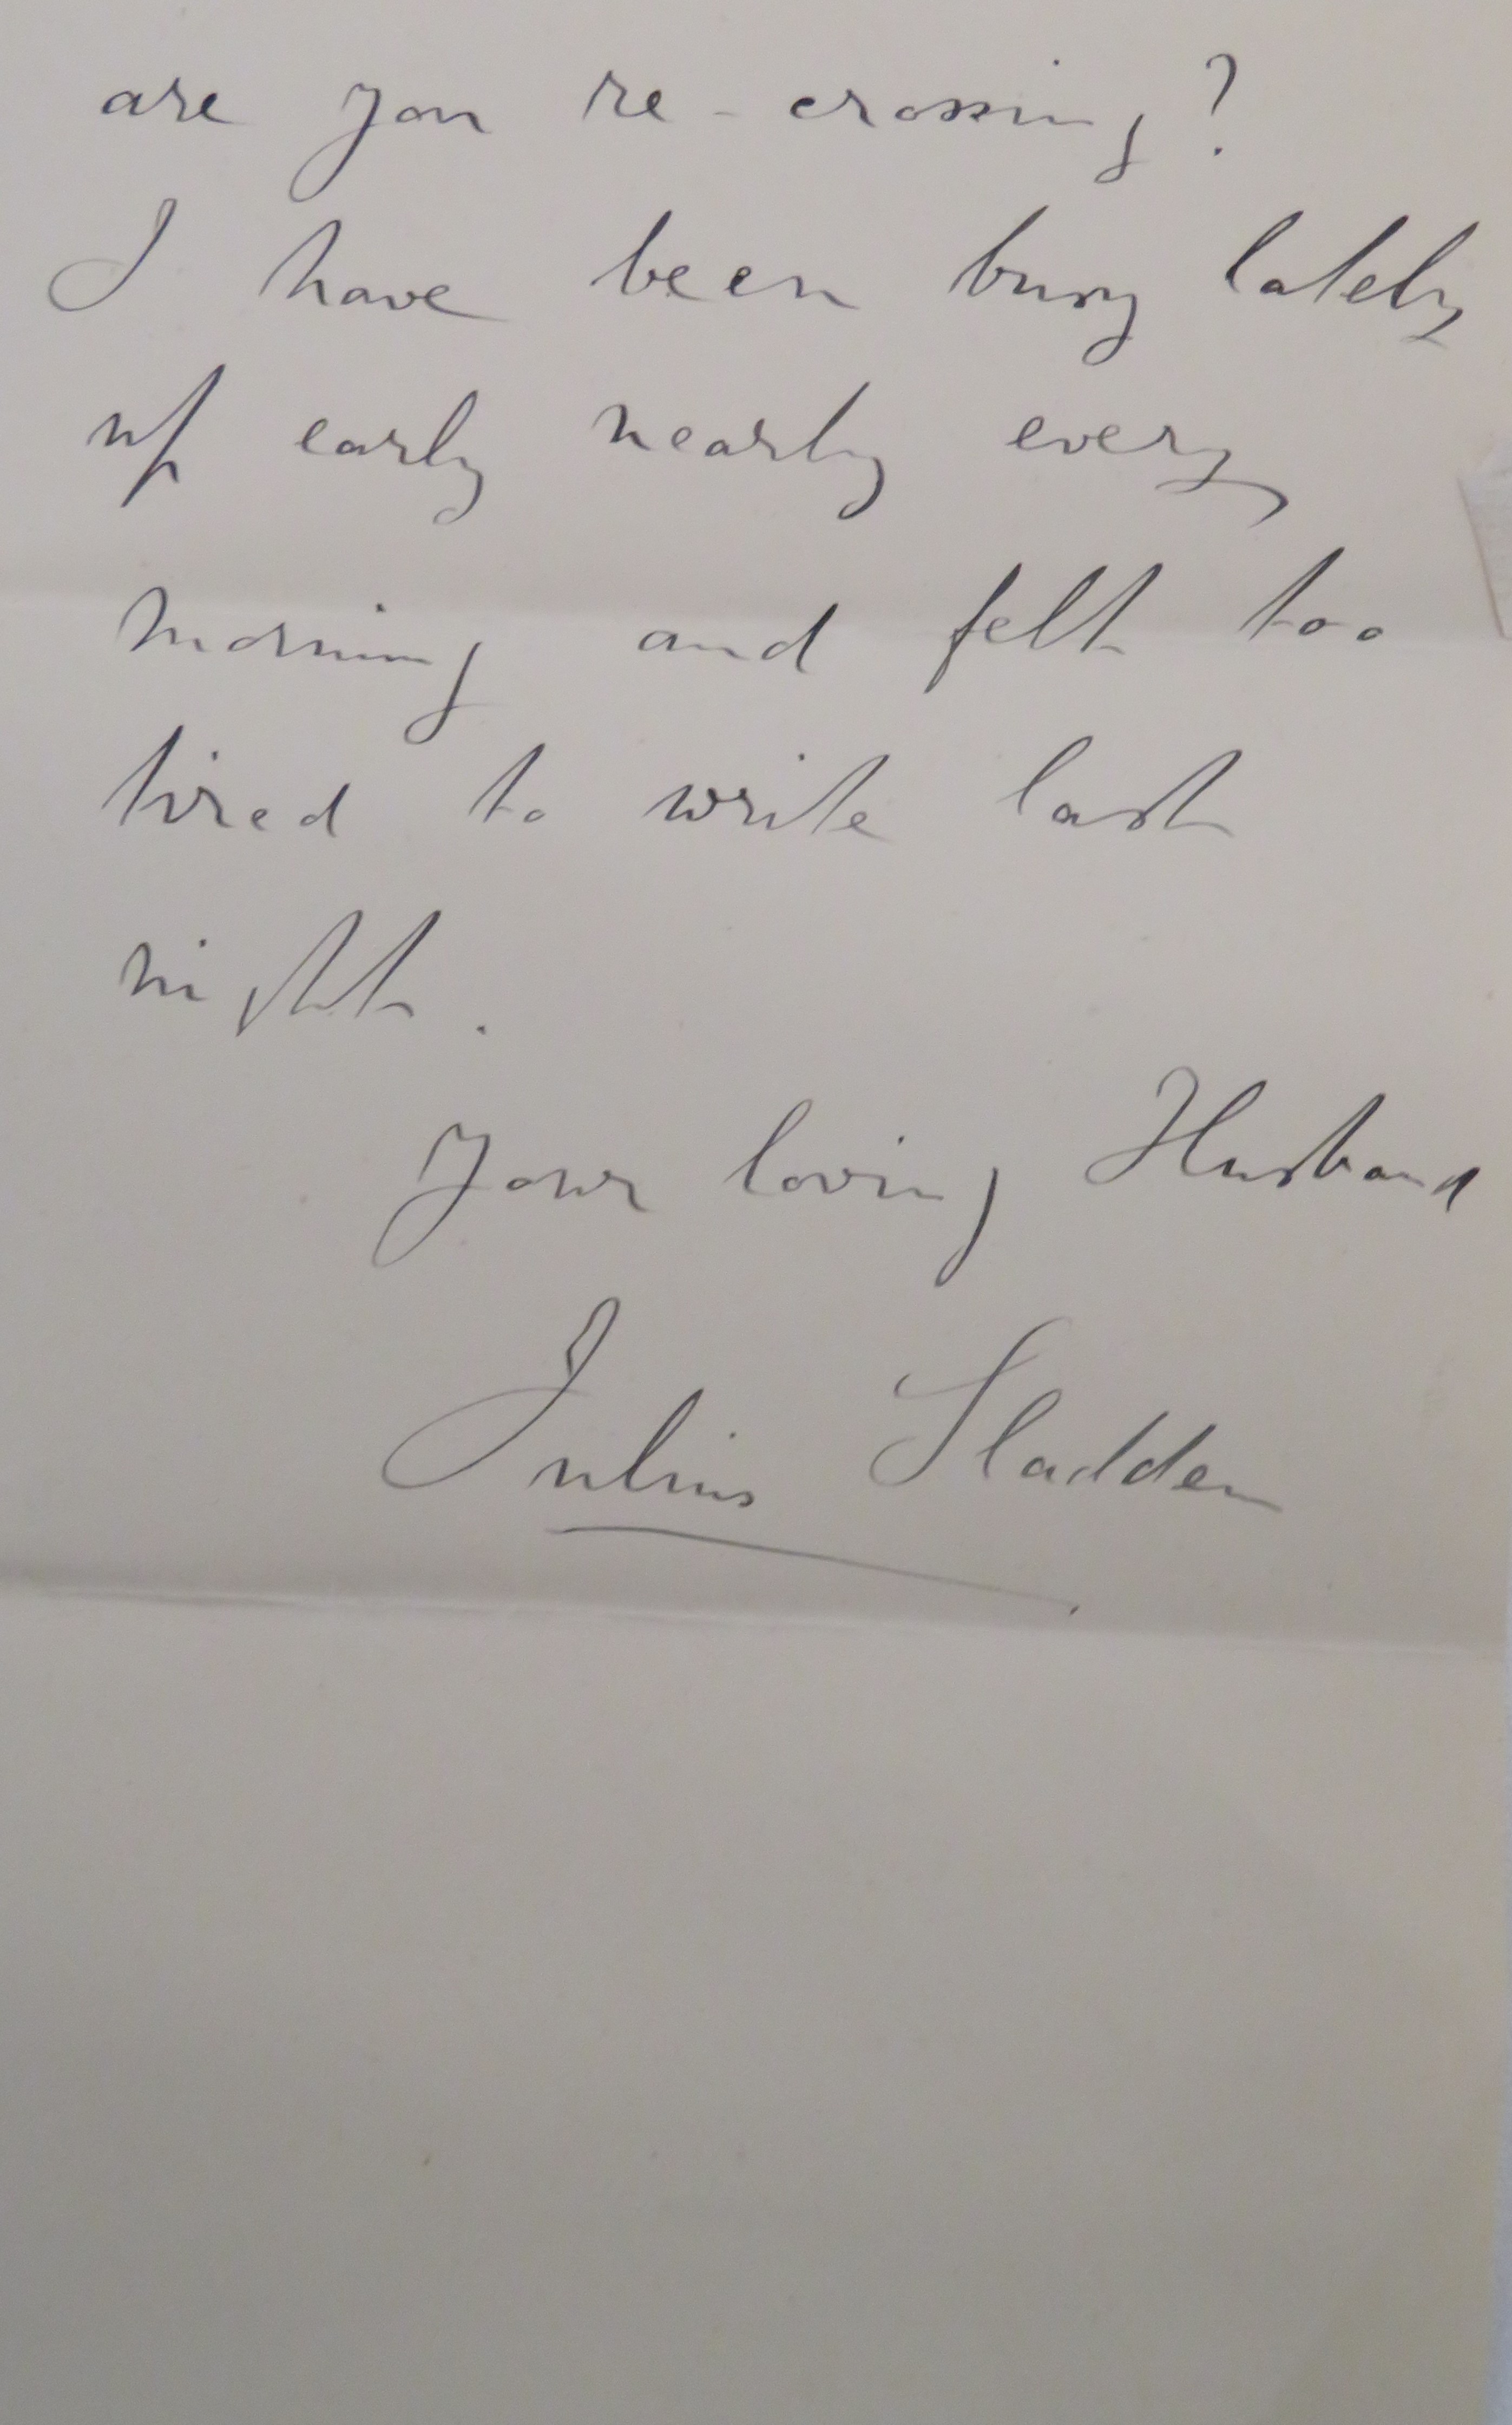 are you re-crossing?
I have been busy lately
up early nearly every
morning and felt too
tired to write last
night.
Your loving Husband
Julius Sladden